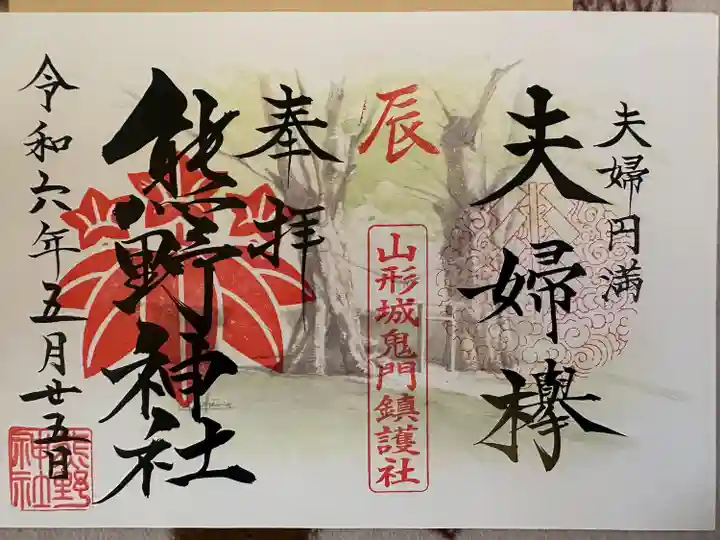 夫婦円満
夫婦欅
辰
山形城鬼門鎮護社
奉拝
熊野神社
令和六年五月廿五日
熊野
神社